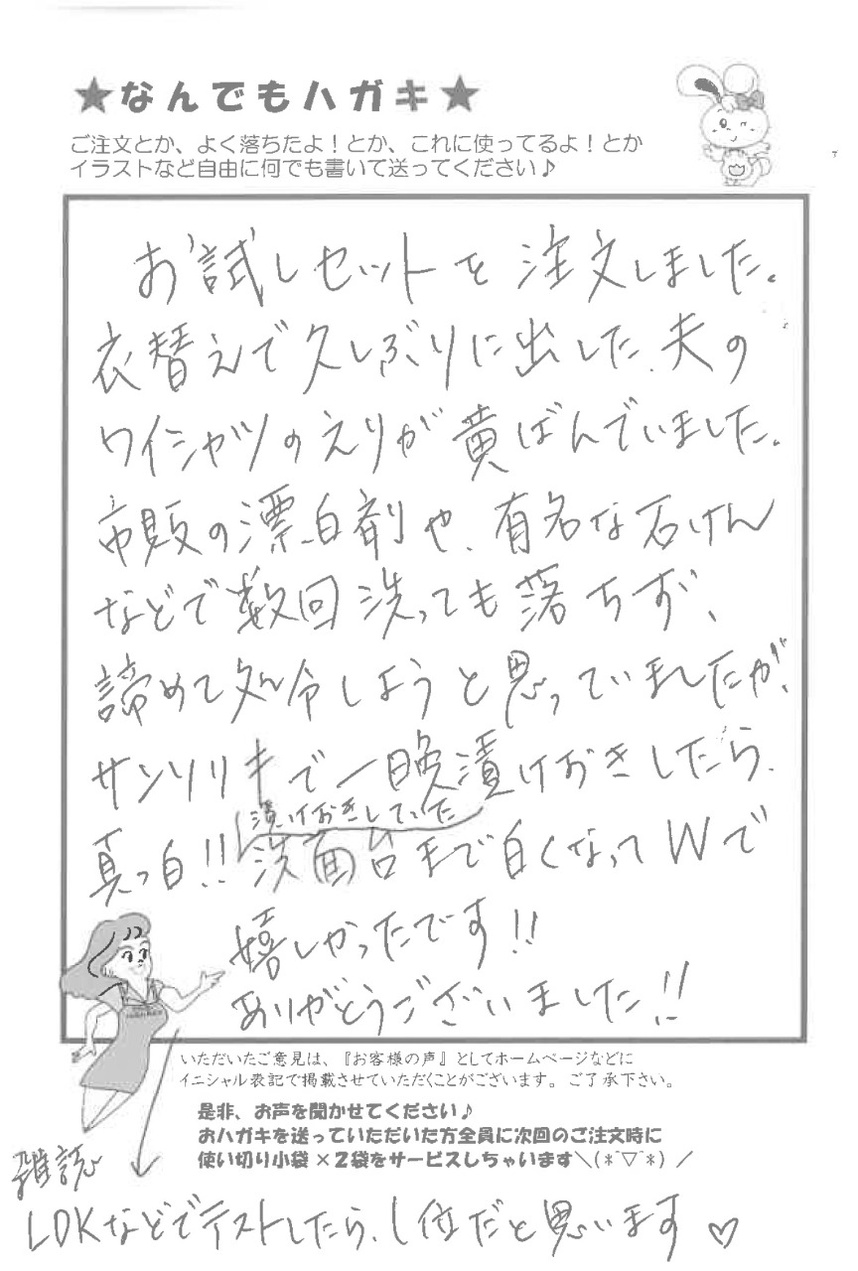 ★なんでもハガキ★
ご注文とか、よく落ちたよ!とか、これに使ってるよ!とか
イラストなど自由に何でも書いて送ってください♪
お試しセットを注文しました。
衣替えで久しぶりに出した、夫の
ワイシャツのえりが黄ばんでいました。
市販の漂白剤や、有名な石けん
などで数回洗っても落ちず、
諦めて処分しようと思っていましたが、
サンソリキで一晩漬けおきしたら、
漬けおきしていた
真っ白!!洗面台まで白くなってWで
嬉しかったです!!
ありがとうございました!!
いただいたご意見は、『お客様の声』としてホームページなどに
イニシャル表記で掲載させていただくことがございます。ご了承下さい。
是非、お声を聞かせてください♪
おハガキを送っていただいた方全員に次回のご注文時に
使い切り小袋×2袋をサービスしちゃいます＼(*ˆ▽ˆ*)／
雑誌
LDKなどでテストしたら、1位だと思います♡